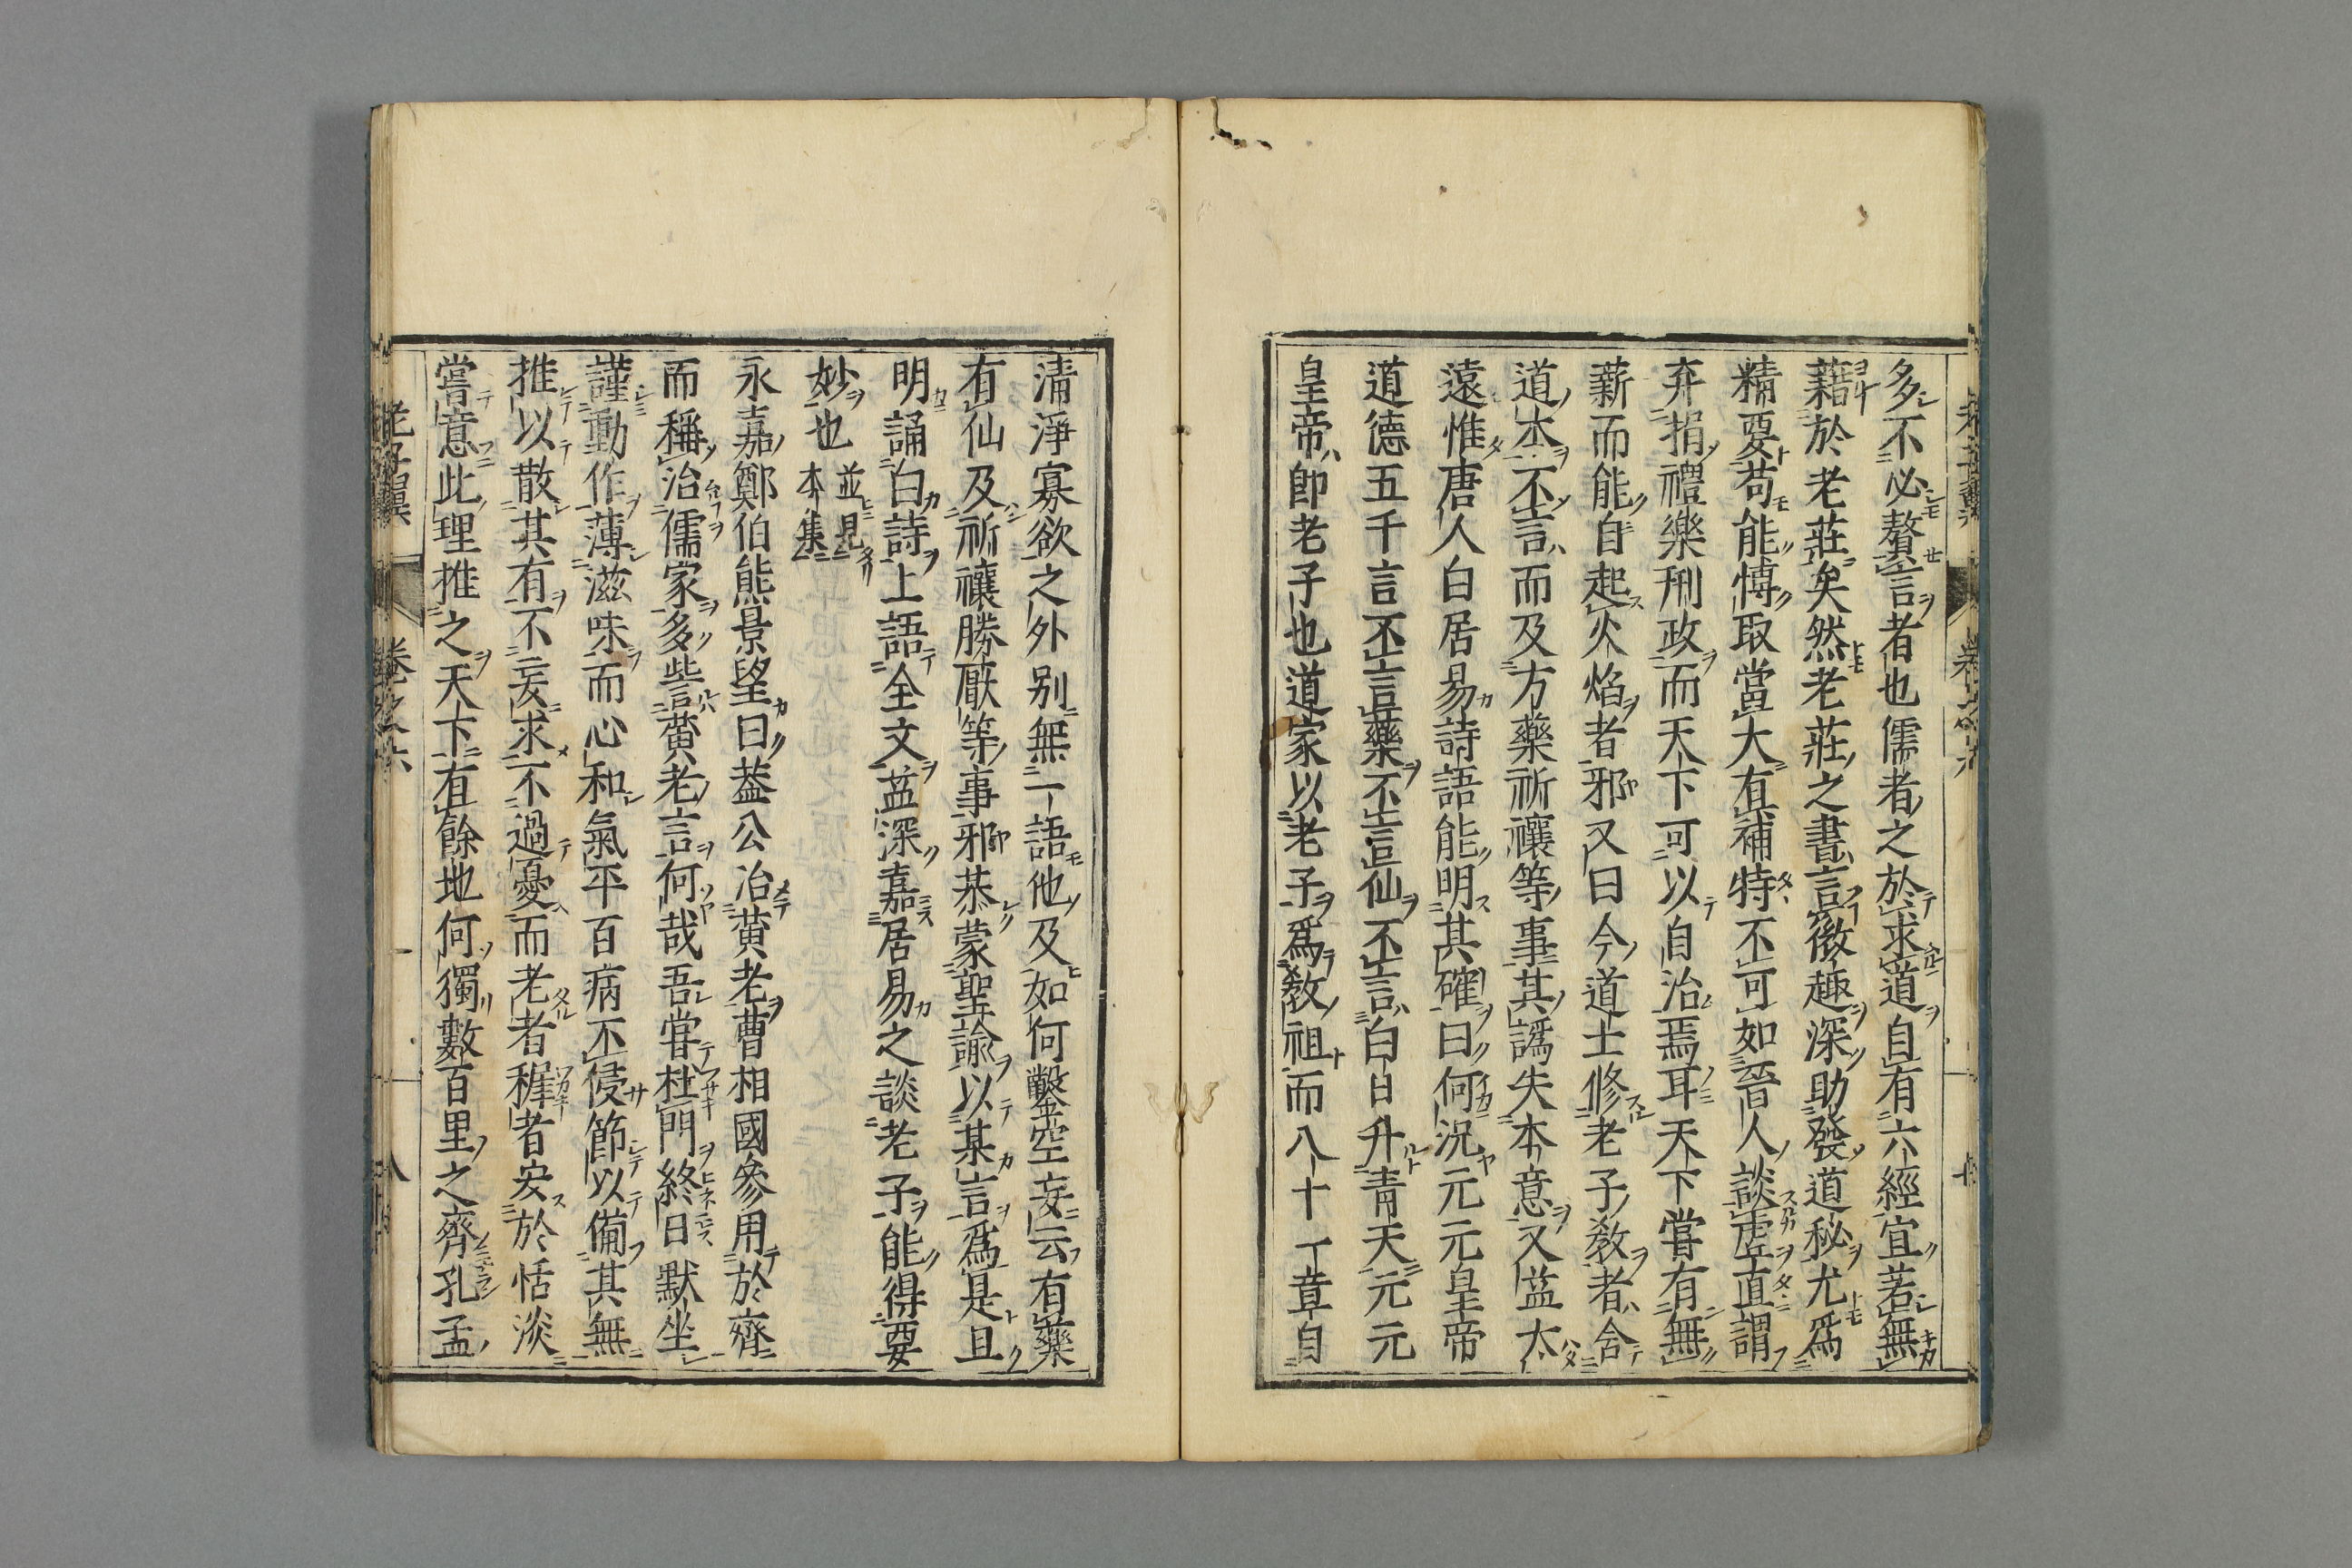 多不必贅言者也儒者之於求道自有六經宜若無
藉於老莊矣然老莊之書言徵趣深助發道秘尤爲
精要苟能博取當大有補特不可如晉人談虛直謂
弃捐禮樂刑政而天下可以自治焉耳天下嘗有無
薪而能自起火焰者邪又曰今道士修老子教者舍
道本不言而及方藥祈禳等事其譌失本意又益太
遠惟唐人白居易詩語能明其確曰何況元元皇帝
道德五千言不言藥不言仙不言白日升青天元元
皇帝即老子也道家以老子爲教祖而八十一章自
清淨寡欲之外別無一語他及如何鑿空妄云有藥
有仙及祈禳勝厭等事邪恭蒙聖諭以某言爲是且
明誦白詩上語全文益深嘉居易之談老子能得要
妙也 並見本集
永嘉鄭伯熊景望曰葢公治黃老曹相國參用於齊
而稱治儒家多訾黃老言何哉吾嘗杜門終日默坐
謹動作薄滋味而心和氣平百病不侵節以備其無
推以散其有不妄求不過憂而老者穉者安於恬淡
嘗意此理推之天下有餘地何獨數百里之齊孔孟
老子翼
卷之六
八